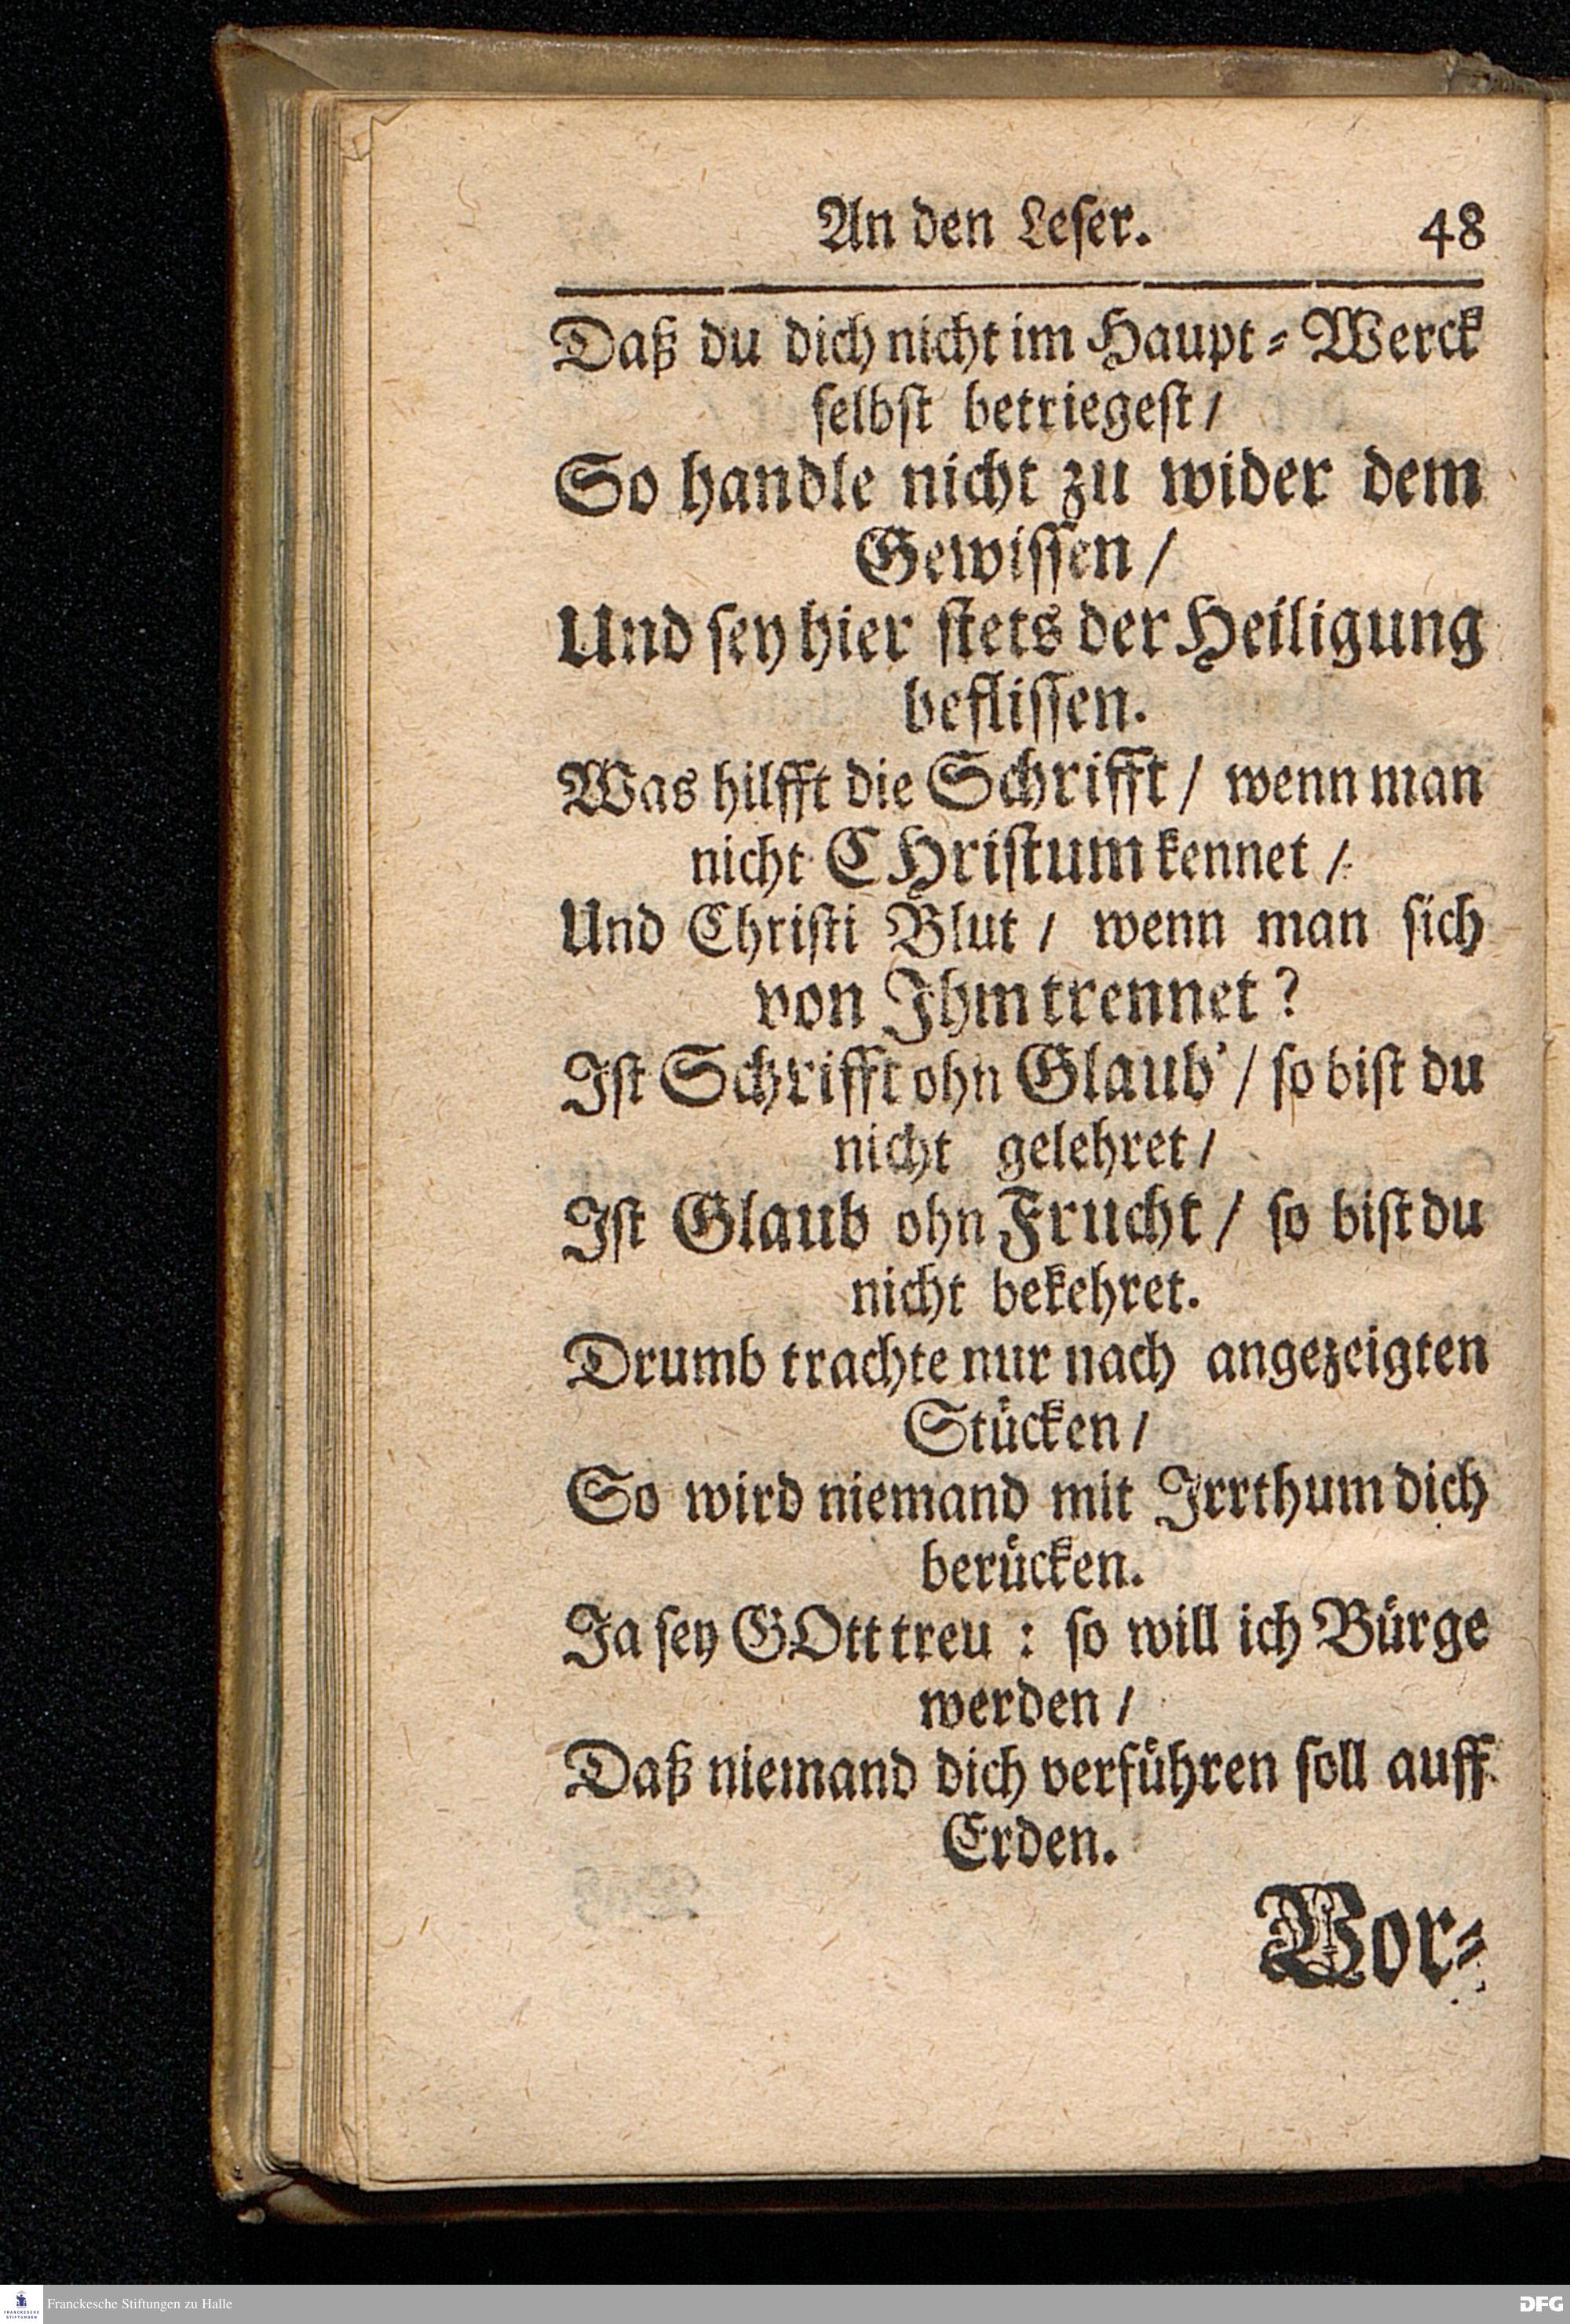 An den Leſer. 48
Daß du dich nicht im Haupt-Werck
ſelbſt betriegeſt/
So handle nicht zu wider dem
Gewiſſen/
Und ſey hier ſtets der Heiligung
befliſſen.
Was hilfft die Schrifft/ wenn man
nicht CHriſtum kennet/
Und Chriſti Blut/ wenn man ſich
von Ihm trennet?
Iſt Schrifft ohn Glaub'/ ſo biſt du
nicht gelehret/
Iſt Glaub ohn Frucht/ ſo biſt du
nicht bekehret.
Drumb trachte nur nach angezeigten
Stücken/
So wird niemand mit Irrthum dich
berücken.
Ja ſey GOtt treu: ſo will ich Bürge
werden/
Daß niemand dich verführen ſoll auff
Erden.
Vor-
FRANCKESCHE STIFTUNGEN
Franckesche Stiftungen zu Halle
DFG